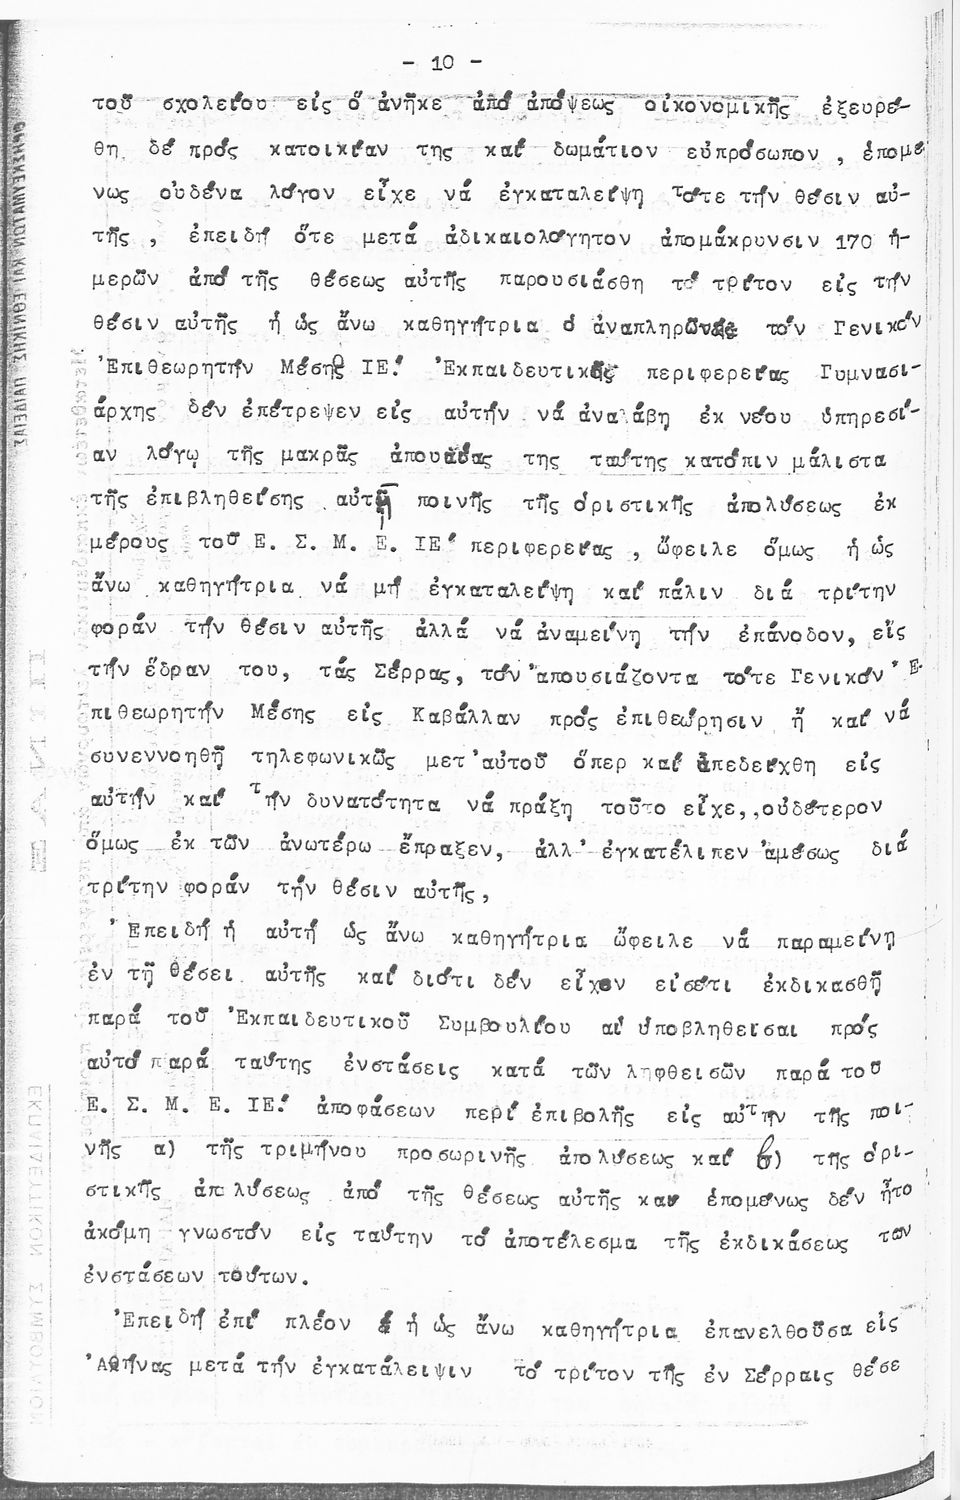 - 10 -
τοῦ σχολείου εἰς ὅ ἀνῆκε ἀπό ἀπόψεως οἰκονομικῆς ἐξευρέ-
θη δέ πρός κατοικίαν της καί δωμάτιον εὐπρόσωπον , ἑπομέ
νως οὐδένα λόγον εἶχε νά ἐγκαταλείψῃ τότε τήν θέσιν αὐ-
τῆς , ἐπειδή ὅτε μετά ἀδικαιολόγητον ἀπομάκρυνσιν 170 ἡ-
μερῶν ἀπό τῆς θέσεως αὐτῆς παρουσιάσθη τό τρίτον εἰς τήν
θέσιν αὐτῆς ἡ ὡς ἄνω καθηγήτρια ὁ ἀναπληρῶν τόν Γενικόν
Ἐπιθεωρητήν Μέσης ΙΕ! Ἐκπαιδευτικῆς περιφερείας Γυμνασι-
άρχης δέν ἐπέτρεψεν εἰς αὐτήν νά ἀναλάβῃ ἐκ νέου ὑπηρεσί-
αν λόγῳ τῆς μακρᾶς ἀπουσίας της ταύτης κατόπιν μάλιστα
τῆς ἐπιβληθείσης αὐτῇ ποινῆς τῆς ὁριστικῆς ἀπολύσεως ἐκ
μέρους τοῦ Ε. Σ. Μ. Ε. ΙΕ' περιφερείας , ὤφειλε ὅμως ἡ ὡς
ἄνω καθηγήτρια νά μή ἐγκαταλείψῃ καί πάλιν διά τρίτην
φοράν τήν θέσιν αὐτῆς ἀλλά νά ἀναμείνῃ τήν ἐπάνοδον, εἰς
τήν ἕδραν του, τάς Σέρρας, τόν ἀπουσιάζοντα τότε Γενικόν Ἐ-
πιθεωρητήν Μέσης εἰς Καβάλλαν πρός ἐπιθεώρησιν ἤ καί νά
συνεννοηθῇ τηλεφωνικῶς μετ'αὐτοῦ ὅπερ καί ἀπεδείχθη εἰς
αὐτήν καί τήν δυνατότητα νά πράξῃ τοῦτο εἶχε,,οὐδέτερον
ὅμως ἐκ τῶν ἀνωτέρω ἔπραξεν, ἀλλ' ἐγκατέλιπεν ἀμέσως διά
τρίτην φοράν τήν θέσιν αὐτῆς,
Ἐπειδή ἡ αὐτή ὡς ἄνω καθηγήτρια ὤφειλε νά παραμείνῃ
ἐν τῇ θέσει αὐτῆς καί διότι δέν εἶχον εἰσέτι ἐκδικασθῇ
παρά τοῦ Ἐκπαιδευτικοῦ Συμβουλίου αἱ ὑποβληθεῖσαι πρός
αὐτό παρά ταύτης ἐνστάσεις κατά τῶν ληφθεισῶν παρά τοῦ
Ε. Σ. Μ. Ε. ΙΕ! ἀποφάσεων περί ἐπιβολῆς εἰς αὐτήν τῆς ποι-
νῆς α) τῆς τριμήνου προσωρινῆς ἀπολύσεως καί β) τῆς ὁρι-
στικῆς ἀπολύσεως ἀπό τῆς θέσεως αὐτῆς καί ἑπομένως δέν ἦτο
ἀκόμη γνωστόν εἰς ταύτην τό ἀποτέλεσμα τῆς ἐκδικάσεως τῶν
ἐνστάσεων τούτων.
Ἐπειδή ἐπί πλέον ἡ ὡς ἄνω καθηγήτρια ἐπανελθοῦσα εἰς
Ἀθήνας μετά τήν ἐγκατάλειψιν τό τρίτον τῆς ἐν Σέρραις θέσε